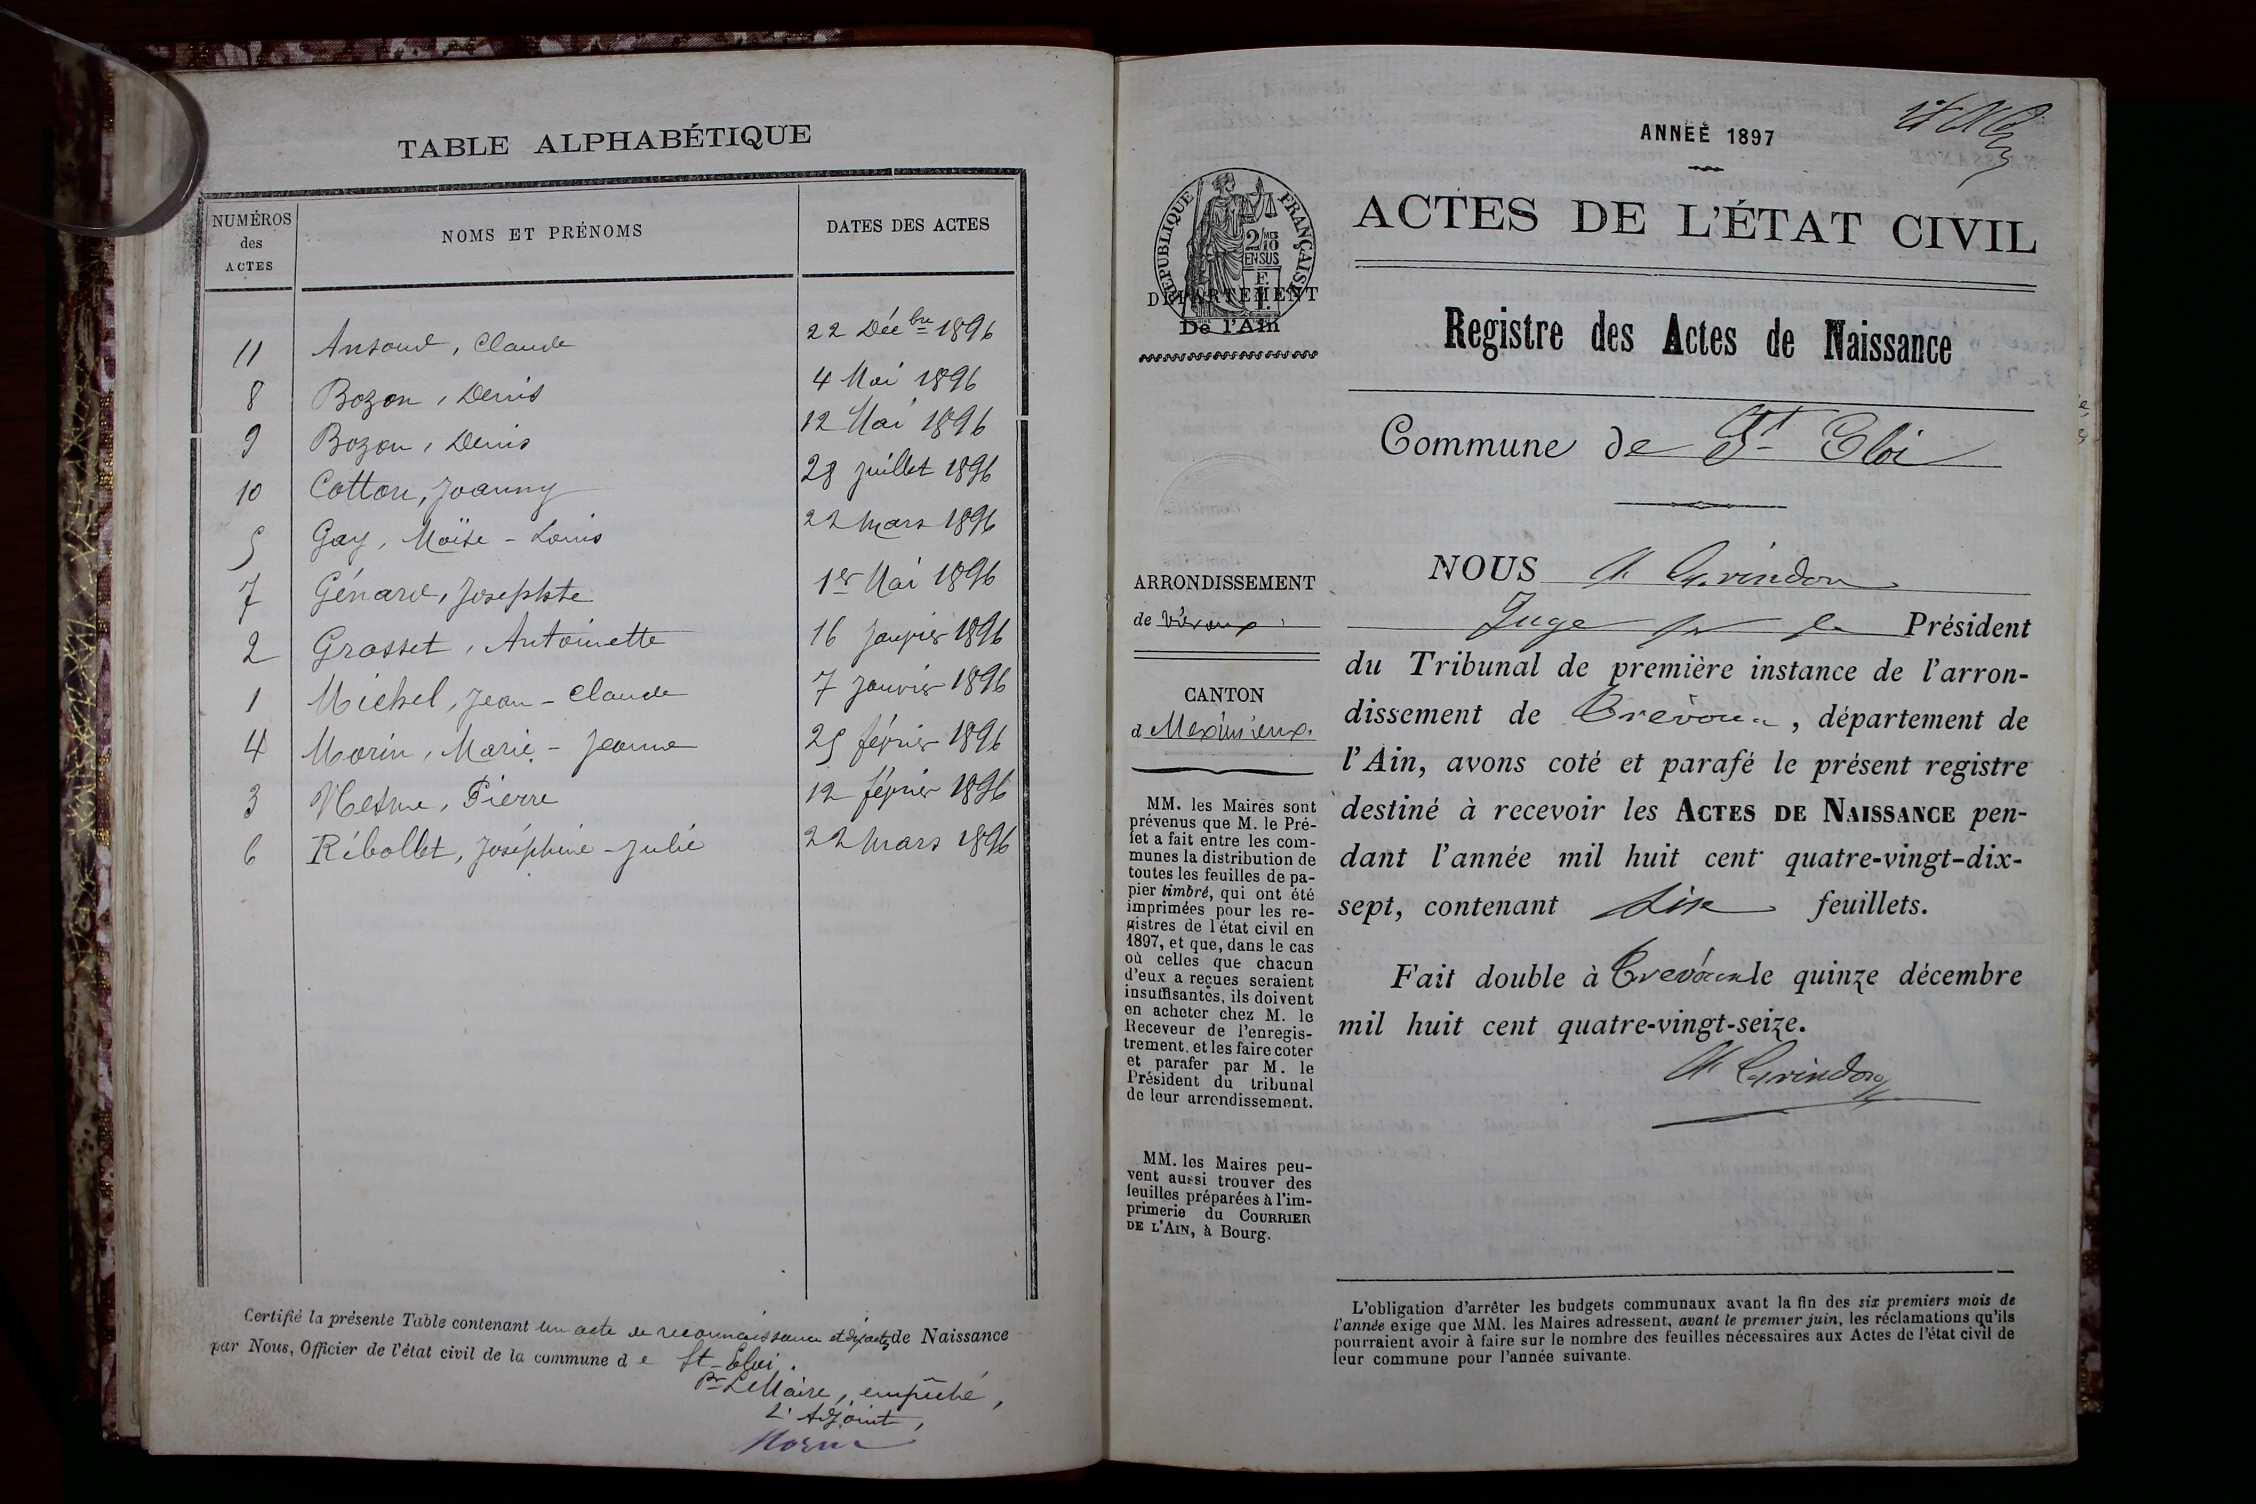 TABLE ALPHABÉTIQUE
NUMÉROS des ACTES NOMS ET PRÉNOMS DATES DES ACTES
11 Ansoud, Claude 22 Déc^bre 1896
8 Bozon, Denis 4 Mai 1896
9 Bozon, Denis 12 Mai 1896
10 Cotton, Joanny 28 juillet 1896
5 Gay, Moïse-Louis 22 mars 1896
7 Génard, Josephte 1er Mai 1896
2 Grosset, Antoinette 16 janvier 1896
1 Michel, Jean-Claude 7 janvier 1896
4 Morin, Marie-Jeanne 25 février 1896
3 Nesme, Pierre 12 février 1896
6 Ribollet, Joséphine-Julie 22 mars 1896
Certifié la présente Table contenant un acte de reconnaissance et dix actes de Naissance
par Nous, Officier de l'état civil de la commune de St-Eloi.
Pr Le Maire, empêché,
L'Adjoint,
ANNÉE 1897
RÉPUBLIQUE FRANÇAISE
2/10 MES
EN SUS
DÉPARTEMENT
De l'Ain
ACTES DE L'ÉTAT CIVIL
Registre des Actes de Naissance
Commune de St Eloi
ARRONDISSEMENT
de Trévoux
CANTON
d Meximieux.
MM. les Maires sont
prévenus que M. le Pré-
fet a fait entre les com-
munes la distribution de
toutes les feuilles de pa-
pier timbré, qui ont été
imprimées pour les re-
gistres de l'état civil en
1897, et que, dans le cas
où celles que chacun
d'eux a reçues seraient
insuffisantes, ils doivent
en acheter chez M. le
Receveur de l'enregis-
trement, et les faire coter
et parafer par M. le
Président du tribunal
de leur arrondissement.
MM. les Maires peu-
vent aussi trouver des
feuilles préparées à l'im-
primerie du COURRIER
DE L'AIN, à Bourg.
NOUS Grindon
Juge Président
du Tribunal de première instance de l'arron-
dissement de Trévoux, département de
l'Ain, avons coté et parafé le présent registre
destiné à recevoir les ACTES DE NAISSANCE pen-
dant l'année mil huit cent quatre-vingt-dix-
sept, contenant dix feuillets.
Fait double à Trévoux le quinze décembre
mil huit cent quatre-vingt-seize.
Grindon
L'obligation d'arrêter les budgets communaux avant la fin des six premiers mois de
l'année exige que MM. les Maires adressent, avant le premier juin, les réclamations qu'ils
pourraient avoir à faire sur le nombre des feuilles nécessaires aux Actes de l'état civil de
leur commune pour l'année suivante.